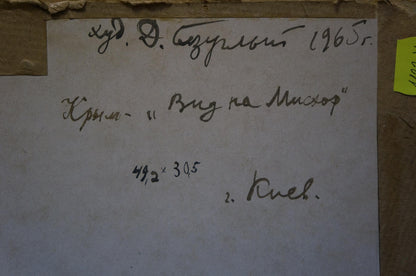 худ. Д. Безуглый 1965г.
Крым - „Вид на Мисхор"
49,2 x 30,5
г. Киев.